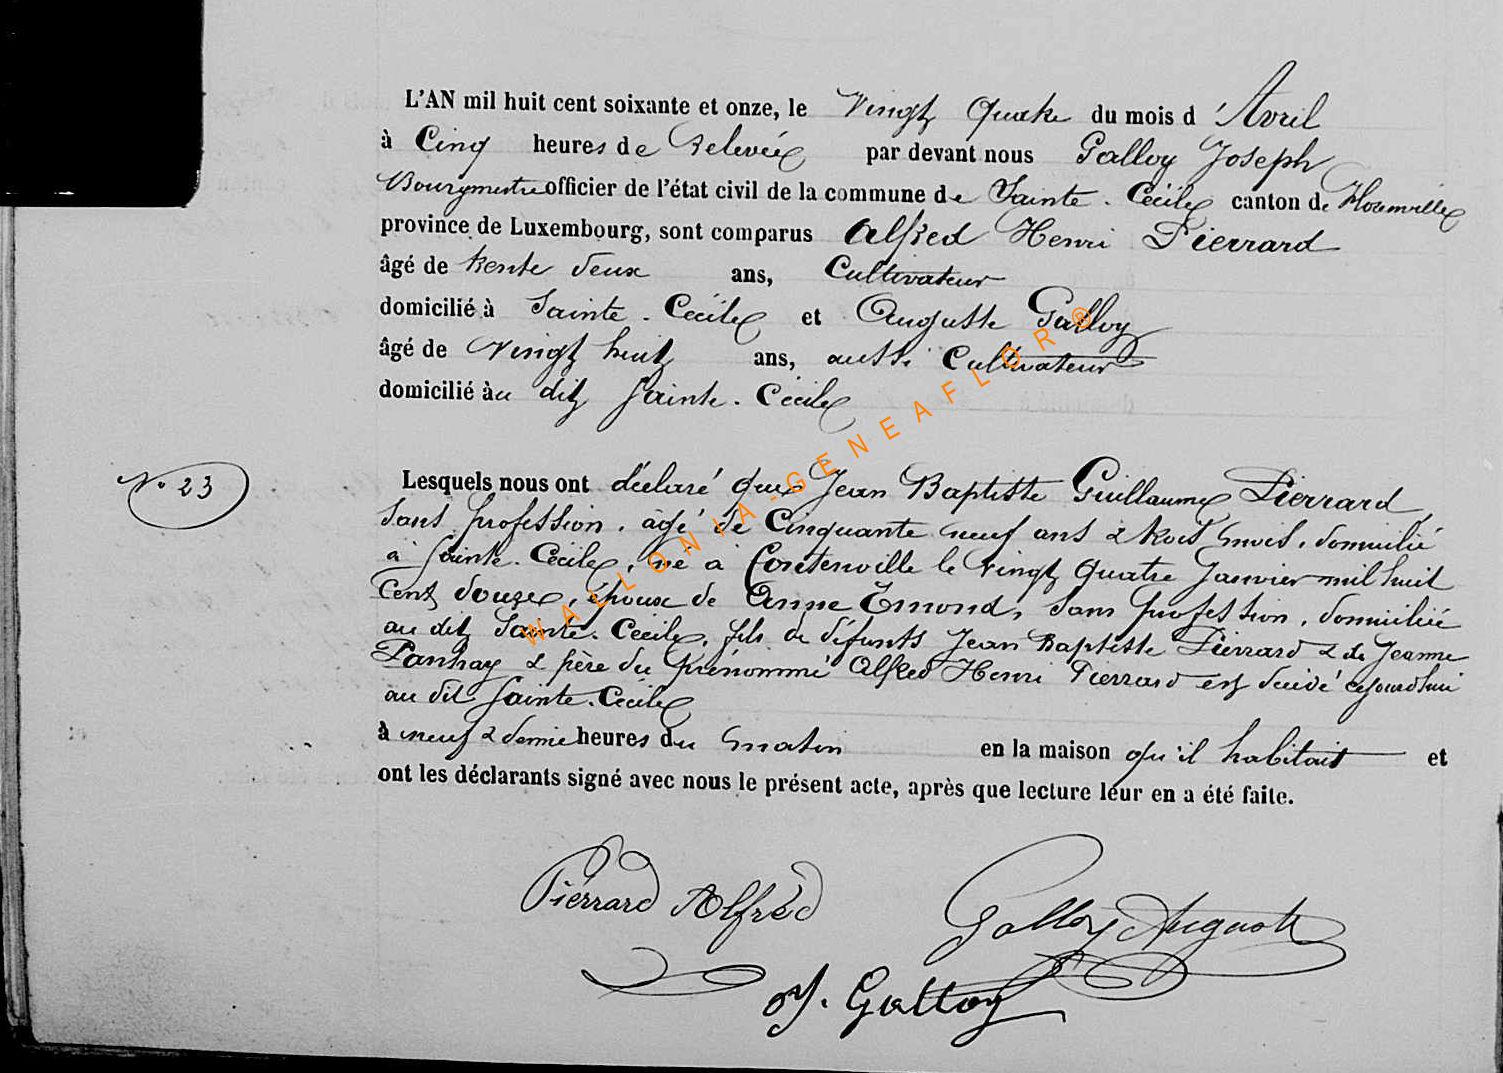 L'AN mil huit cent soixante et onze, le Vingt Quatre du mois d'Avril
à Cinq heures de Relevée par devant nous Galloy Joseph
Bourgmestre officier de l'état civil de la commune de Sainte-Cécile canton de Florenville
province de Luxembourg, sont comparus Alfred Henri Pierrard
âgé de trente deux ans, Cultivateur
domicilié à Sainte-Cécile et Auguste Galloy
âgé de Vingt huit ans, aussi Cultivateur
domicilié au dit Sainte-Cécile
N° 23
Lesquels nous ont déclaré que Jean Baptiste Guillaume Pierrard,
sans profession, âgé de Cinquante neuf ans & trois mois, domicilié
à Sainte-Cécile, né à Fontenville le vingt quatre Janvier mil huit
cent douze, époux de Anne Émond, sans profession, domiciliée
au dit Sainte-Cécile, fils de défunts Jean Baptiste Pierrard & de Jeanne
Panhay & père du prénommé Alfred Henri Pierrard est décédé cejourd'hui
au dit Sainte-Cécile
à neuf & demie heures du matin en la maison qu'il habitait et
ont les déclarants signé avec nous le présent acte, après que lecture leur en a été faite.
Pierrard Alfréd Galloy Auguste
J. Galloy
WALLONIA-GENEAFLOR®